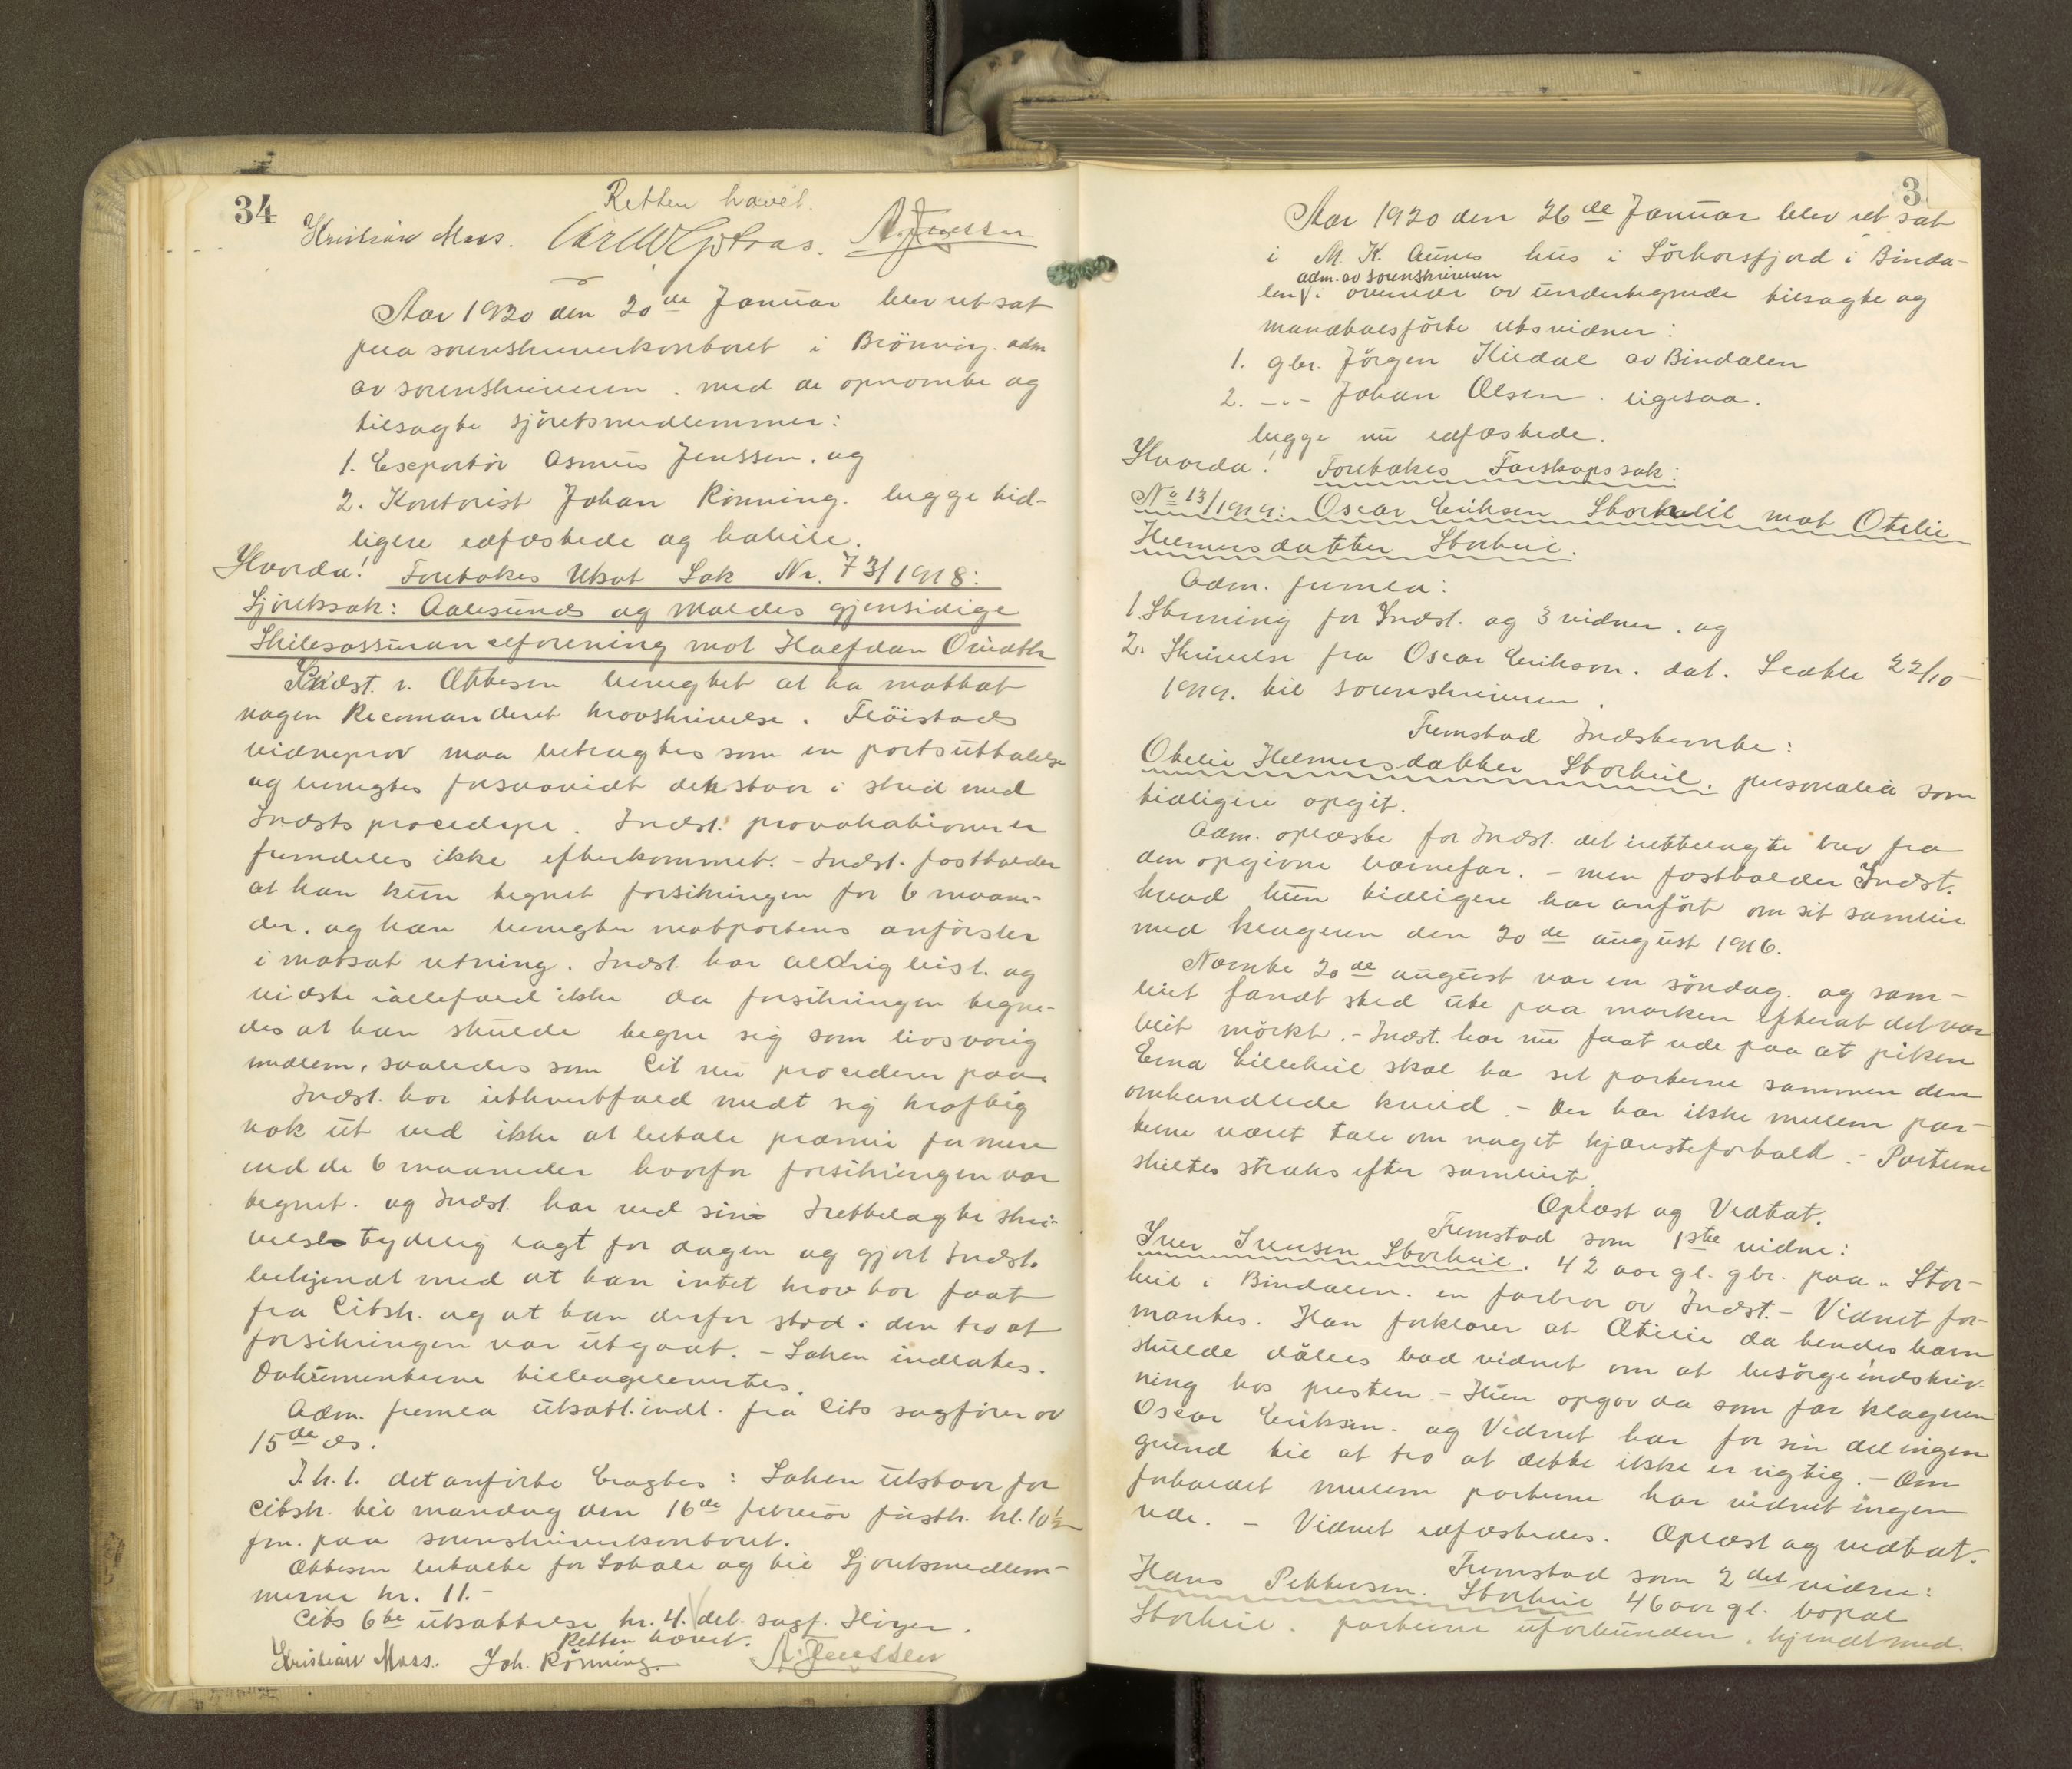 34
Retten hævet.
Kristian Moss. A. Jenssen
Aar 1920 den 20de Januar blev ret sat
paa sorenskriverkontoret i Brönnöy. adm
av sorenskriveren. med de opnævnte og
tilsagte sjöretsmedlemmer:
1. Exportör Asmus Jenssen. og
2. Kontorist Johan Rönning. begge tid-
ligere edfæstede og habile.
Hvorda! Foretokes Utsat Sak Nr. 73/1918:
Sjöretssak: Aalesunds og Moldes gjensidige
Skibsassuranceforening mot Halfdan Qvidth
Indst. v. Ottesen benegtet at ha mottat
nogen Recomanderet kravskrivelse. Flöistads
vidneprov maa betragtes som en partsuttalelse
og benegtes forsaavidt den staar i strid med
Indsts procedyre. Indst. provokationer er
fremdeles ikke efterkommet. - Indst. fastholder
at han kun tegnet forsikringen for 6 maane-
der. og han benegter motpartens anförsler
i motsat retning. Indst. har aldrig visst. og
vidste iallefald ikke da forsikringen tegne-
des at han skulde tegne sig som livsvarig
medlem, saaledes som Cit nu procederer paa.
Indst. har ialhvertfald meldt sig kraftig
nok ut ved ikke at betale præmie for mere
end de 6 maaneder hvorfor forsikringen var
tegnet. og Indst. har ved sin fretlagte skri-
velse tydelig lagt for dagen og gjort Indst.
bekjendt med at han intet krav har faat
fra Citsk. og at han derfor stod i den tro at
forsikringen var utgaat. - Saken indlates.
Dokumenterne tilbageleveres.
Adm. fremla utsætt.indl. fra Cits sagförer av
15de ds.
I. h. t. det anförte Eragtes: Saken utstaar for
Citsk. til mandag den 16de februar förstk. kl. 10 1/2
fm. paa sorenskriverkontoret.
Ottesen betalte for Lokale og til Sjöretsmedlem-
merne kr. 11.-
Cits 6te utsættelse kr. 4. det. sagf. Höyer.
Retten hævet.
Kristian Moss. Joh. Rönning. A. Jenssen
3
Aar 1920 den 26de Januar blev ret sat
i M. K. Aunes hus i Sörhorsfjord i Binda-
adm. av sorenskriveren
len i overvær av undertegnede tilsagte og
mandtalsförte retsvidner:
1. gbr. Jörgen Kildal av Bindalen
2. -"- Johan Olsen. ligesaa.
begge nu edfæstede.
Hvorda! Foretokes Farskapssak:
No 13/1919: Oscar Eriksen Storheil mot Otelie
Helmersdatter Storheil.
Adm. fremla:
1. Stevning for Indst. og 3 vidner. og
2. Skrivelse fra Oscar Erikson. dat. Seattle 22/10-
1919. til sorenskriveren.
Fremstod Indstevnte:
Otelie Helmersdatter Storheil. personalia som
tidligere opgit.
Adm. oplæste for Indst. det irettelagte brev fra
den opgivne barnefar. - men fastholder Indst.
hvad hun tidligere har anfört om sit samleie
med klageren den 20de august 1916.
Nævnte 20de august var en söndag. og sam-
leiet fandt sted ute paa marken efterat det var
blit mörkt. - Indst. har nu faat vide paa at piken
Erna Lilleheil skal ha set parterne sammen den
omhandlede kveld. - Der har ikke mellem par-
terne været tale om noget kjæresteforhold. - Parterne
skiltes straks efter samleiet.
Oplæst og Vedtat.
Fremstod som 1ste vidne:
Iver Iversen Storheil. 42 aar gl. gbr. paa Stor-
heil i Bindalen. en farbror av Indst. - Vidnet for-
mantes. Han forklarer at Otilie da hendes barn
skulde döbes bad vidnet om at besörge indskriv-
ning hos presten. - Hun opgav da som far klageren
Oscar Eriksen. og Vidnet har for sin del ingen
grund til at tro at dette ikke er rigtig. - Om
forholdet mellem parterne har vidnet ingen
vide. - Vidnet edfæstedes. Oplæst og vedtat.
Fremstod som 2det vidne:
Hans Pettersen. Storheil 46 aar gl. bopæl
Storheil. parterne uforbunden. kjendt med.